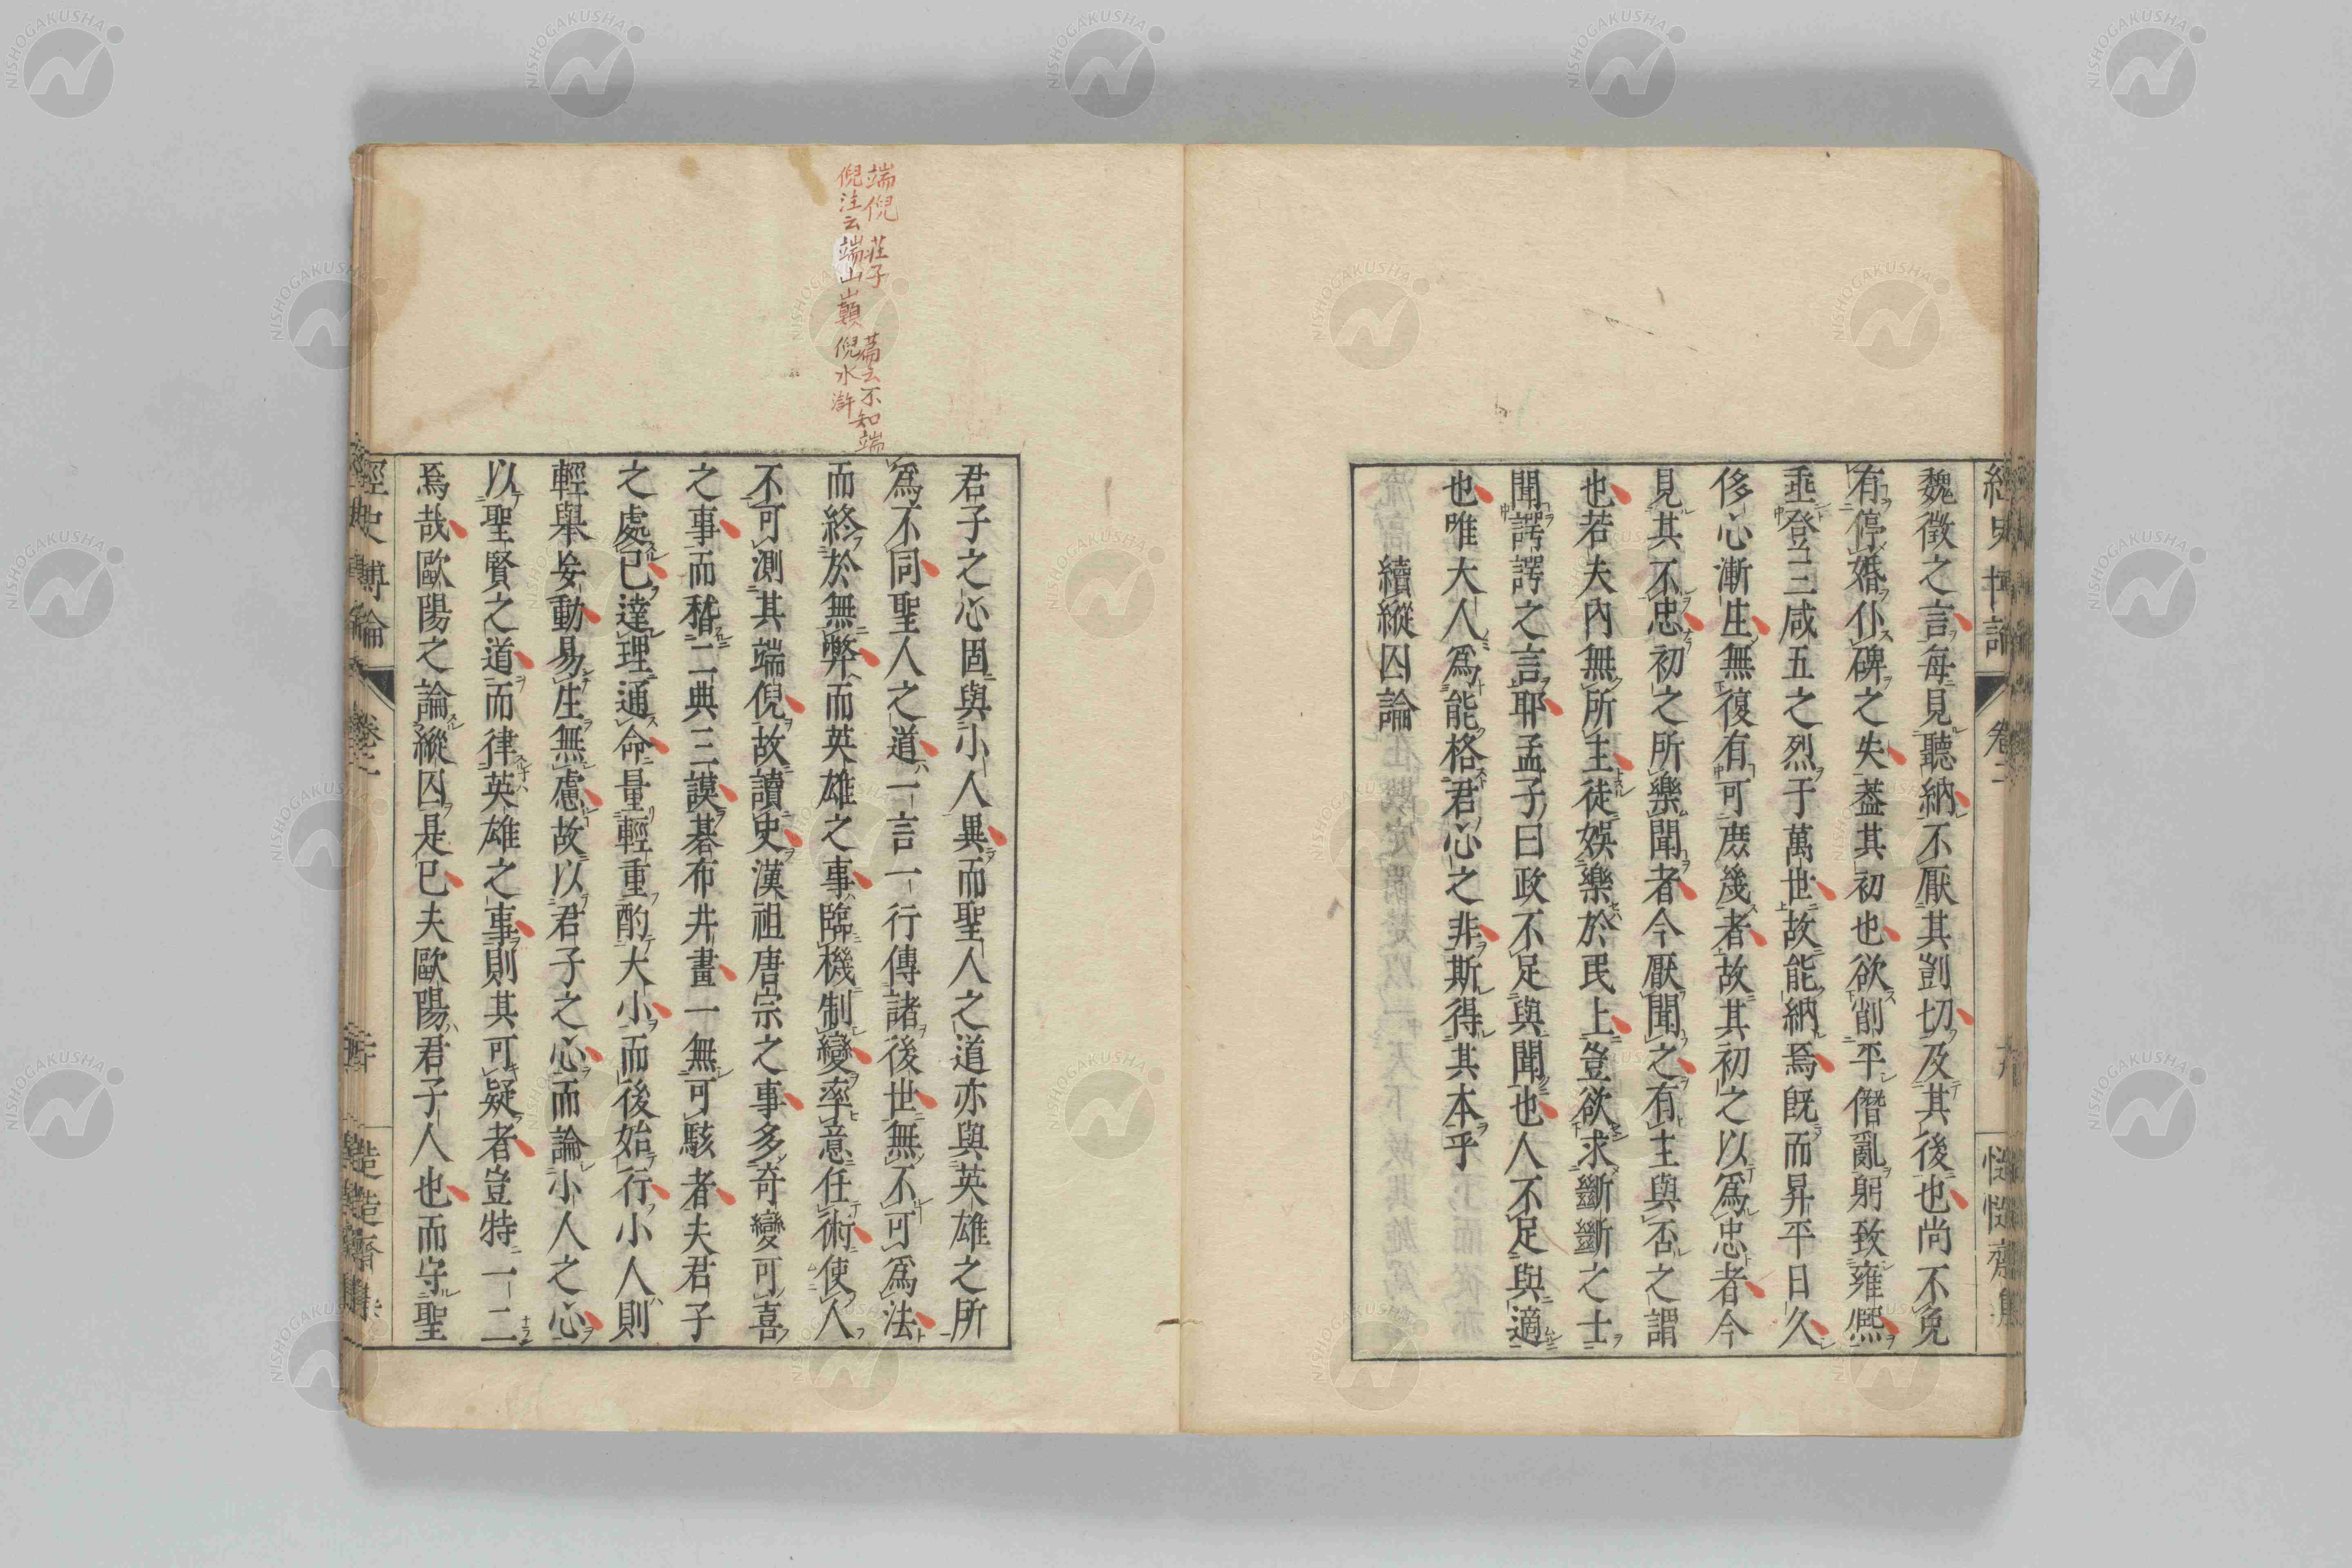 魏徵之言每見聽納不厭其剴切及其後也尚不免
有停婚仆碑之失蓋其初也欲削平僭亂躬致雍熈
埀登三咸五之烈于萬世故能納焉既而昇平日久
侈心漸生無復有可庶幾者故其初之以爲忠者今
見其不忠初之所樂聞者今厭聞之有主與否之謂
也若夫內無所主徒娛樂於民上豈欲求斷斷之士
聞諤諤之言耶孟子曰政不足與聞也人不足與適
也唯大人爲能格君心之非斯得其本乎
續縱囚論
端倪 莊子 篇云不知端
倪注云端山巔倪水滸
君子之心固與小人異而聖人之道亦與英雄之所
爲不同聖人之道一言一行傳諸後世無不可爲法
而終於無弊而英雄之事臨機制變率意任術使人
不可測其端倪故讀史漢祖唐宗之事多奇變可喜
之事而稽二典三謨碁布井畫一無可駭者夫君子
之處已達理通命量輕重酌大小而後始行小人則
輕舉妄動易生無慮故以君子之心而論小人之心
以聖賢之道而律英雄之事則其可疑者豈特一二
焉哉歐陽之論縱囚是已夫歐陽君子人也而守聖
經史博論
卷二